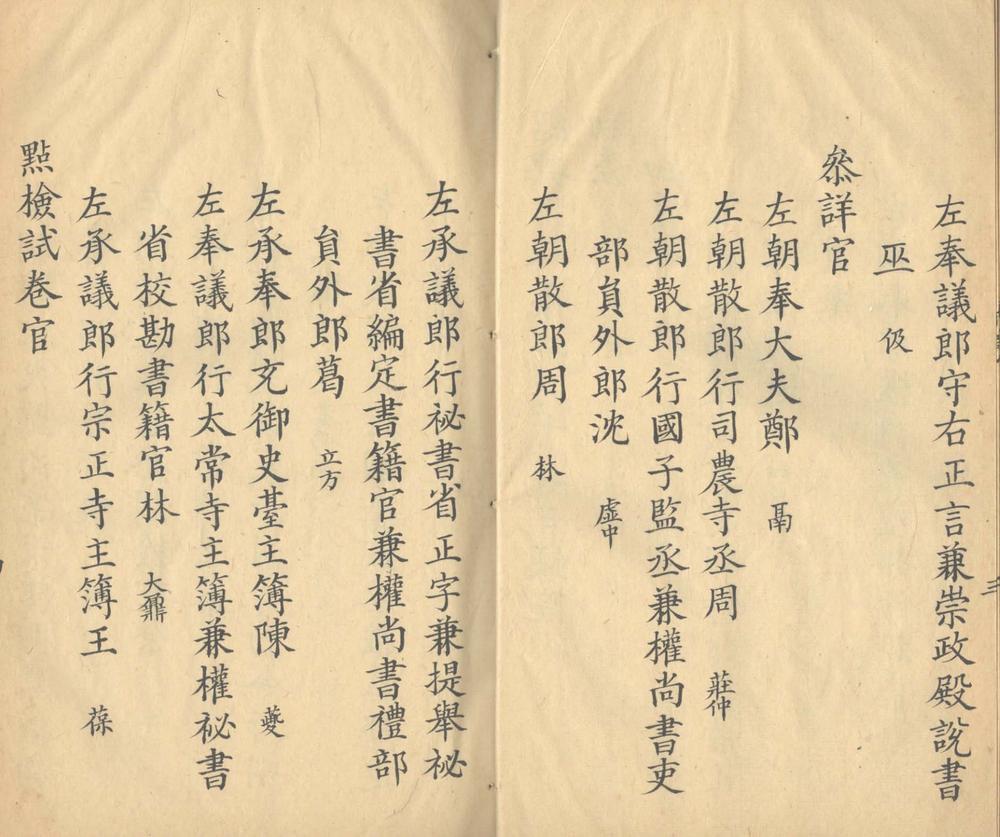 左奉議郎守右正言兼崇政殿說書
巫 伋
叅詳官
左朝奉大夫鄭 鬲
左朝散郎行司農寺丞周 莊仲
左朝散郎行國子監丞兼權尚書吏
部員外郎沈 虛中
左朝散郎周 林
左承議郎行祕書省正字兼提舉祕
書省編定書籍官兼權尚書禮部
員外郎葛 立方
左承奉郎充御史臺主簿陳 夔
左奉議郎行太常寺主簿兼權祕書
省校勘書籍官林 大鼐
左承議郎行宗正寺主簿王 葆
點檢試卷官